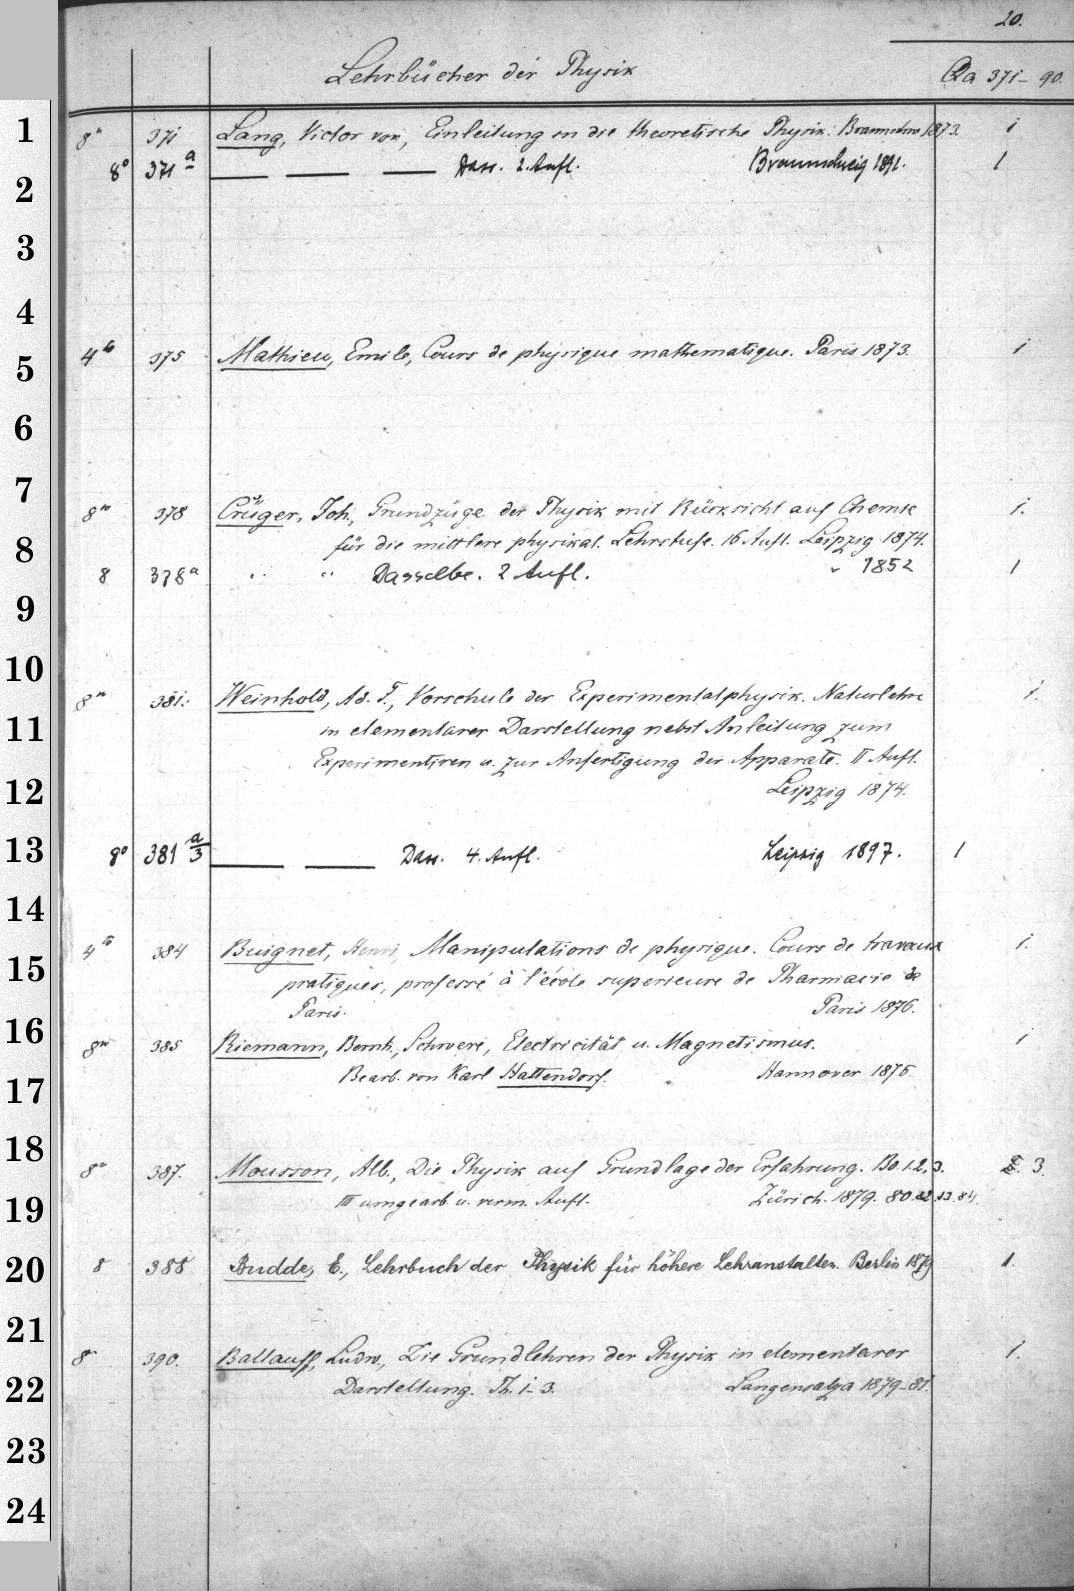 20.
Lehrbücher der Physik Qa 371-90.
1 8° 371 Lang, Victor von, Einleitung in die theoretische Physik. Braunschw 1873. 1
8° 371 a — — — Dass. 2. Aufl. Braunschweig 1891. 1
2
3
4
5 4to 375 Mathieu, Emile, Cours de physique mathematique. Paris 1873. 1
6
7
8vo 378 Crüger, Joh., Grundzüge der Physik mit Rücksicht auf Chemie 1.
8 für die mittlere physikal. Lehrstufe. 16 Aufl. Leipzig 1874.
8 378a " " Dasselbe. 2 Aufl. " 1852 1
9
10
8vo 381. Weinhold, Ad. F., Vorschule der Experimentalphysik. Naturlehre 1.
11 in elementarer Darstellung nebst Anleitung zum
Experimentiren u. zur Anfertigung der Apparate. II Aufl.
12 Leipzig 1874.
13 8° 381 a/3 — — Dass. 4. Aufl. Leipzig 1897. 1
14
4to 384 Buignet, Henri, Manipulations de physique. Cours de travaux 1.
15 pratiques, professé à l'école superieure de Pharmacie de
Paris. Paris 1876.
16 8vo 385 Riemann, Bernh., Schwere, Electricität u. Magnetismus. 1
17 Bearb. von Karl Hattendorf. Hannover 1876
18
8vo 387. Mousson, Alb., Die Physik auf Grundlage der Erfahrung. Bd. 1.2.3. 3.
19 III umgearb. u. verm. Aufl. Zürich. 1879. 80.82.83.84.
20 8 388 Budde, E., Lehrbuch der Physik für höhere Lehranstalten. Berlin 1879 1.
21
8° 390. Ballauff, Ludw., Die Grundlehren der Physik in elementarer 1.
22 Darstellung. Th. 1-3. Langensalza 1879-81.
23
24